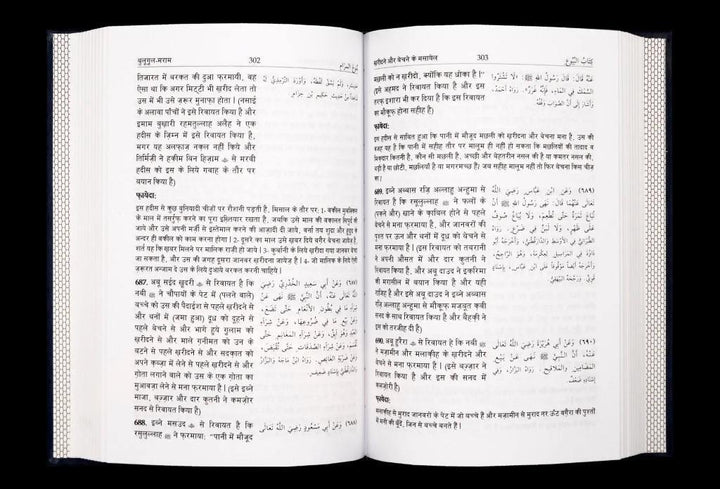 बुलूगुल-मराम 302 بُلُوغُ الْمَرَام
तिजारत में बरकत की दुआ फ़रमायी, वह
ऐसा था कि अगर मिट्टी भी ख़रीद लेता तो
उस में भी उसे ज़रूर मुनाफ़ा होता। (नसाई
के अलावा पाँचों ने इसे रिवायत किया है और
इमाम बुख़ारी रहमतुल्लाह अलैह ने एक
हदीस के ज़िम्न में इसे रिवायत किया है,
मगर यह अलफ़ाज़ नक़ल नहीं किये और
तिर्मिज़ी ने हकीम बिन हिज़ाम से मरवी
हदीस को इस के लिये गवाह के तौर पर
बयान किया है)
حَدِيثٍ، وَلَمْ يَسُقْ لَفْظَهُ، وَأَوْرَدَ التِّرْمِذِيُّ لَهُ
شَاهِداً مِنْ حَدِيثِ حَكِيمِ بْنِ حِزَامٍ.
फ़ायेदा:
इस हदीस से कुछ बुनियादी चीज़ों पर रौशनी पड़ती है, मिसाल के तौर पर: 1- वकील मुवक्किल
के माल में तसर्रुफ़ करने का पूरा इख़्तियार रखता है, जबकि उसे माल की वकालत सिपुर्द की
जाये और उसे अपनी मर्ज़ी से इस्तेमाल करने की आज़ादी दी जाये, वर्ना तय शुदा और हुदूद के
अन्दर ही वकील को काम करना होगा। 2- दूसरे का माल उसे ख़बर दिये बग़ैर बेचना जायेज़ है,
शर्त यह कि ख़बर मिलने पर मालिक राज़ी हो जाये। 3- क़ुर्बानी के लिये ख़रीदा गया जानवर बेचा
जा सकता है, और उस की जगह दूसरा जानवर ख़रीदना जायेज़ है। 4- जो मालिक के लिये ऐसी
ज़रूरत अन्जाम दे उस के लिये दुआये बरकत करनी चाहिये।
687. अबू सईद ख़ुदरी से रिवायत है कि
नबी ने चौपायों के पेट में (पलने वाले)
बच्चे को उस की पैदाईश से पहले ख़रीदने से
और थनों में (जमा हुआ) दूध को दुहने से
पहले बेचने से और भागे हुये ग़ुलाम को
ख़रीदने से और माले ग़नीमत को उन के
बटने से पहले ख़रीदने से और सदक़ात को
अपने क़ब्ज़ा में लेने से पहले ख़रीदने से और
ग़ोता लगाने वाले को उस के एक ग़ोता का
मुआवज़ा लेने से मना फ़रमाया है। (इसे इब्ने
माजा, बज़्ज़ार और दार क़ुतनी ने कमज़ोर
सनद से रिवायत किया है)
(٦٨٧) وَعَنْ أَبِي سَعِيدٍ الْخُدْرِيِّ رَضِيَ
اللَّهُ تَعَالَى عَنْهُ، أَنَّ النَّبِيَّ ﷺ نَهَى عَنْ
شِرَاءِ مَا فِي بُطُونِ الْأَنْعَامِ حَتَّى تَضَعَ،
وَعَنْ بَيْعِ مَا فِي ضُرُوعِهَا، وَعَنْ شِرَاءِ
الْعَبْدِ وَهُوَ آبِقٌ، وَعَنْ شِرَاءِ الْمَغَانِمِ حَتَّى
تُقْسَمَ، وَعَنْ شِرَاءِ الصَّدَقَاتِ حَتَّى تُقْبَضَ،
وَعَنْ ضَرْبَةِ الْغَائِصِ. رَوَاهُ ابْنُ مَاجَهْ وَالْبَزَّارُ
وَالدَّارَقُطْنِيُّ بِإِسْنَادٍ ضَعِيفٍ.
688. इब्ने मसऊद से रिवायत है कि
रसूलुल्लाह ने फ़रमाया: "पानी में मौजूद
(٦٨٨) وَعَنِ ابْنِ مَسْعُودٍ رَضِيَ اللَّهُ تَعَالَى
ख़रीदने और बेचने के मसायेल 303 كِتَابُ الْبُيُوعِ
मछली को न ख़रीदो, क्योंकि यह धोका है।"
(इसे अहमद ने रिवायत किया है और इस
तरफ़ इशारा भी कर दिया है कि इस रिवायत
का मौक़ूफ़ होना सहीह है)
عَنْهُ قَالَ: قَالَ رَسُولُ اللَّهِ ﷺ: «لَا تَشْتَرُوا
السَّمَكَ فِي الْمَاءِ، فَإِنَّهُ غَرَرٌ». رَوَاهُ أَحْمَدُ،
وَأَشَارَ إِلَى أَنَّ الصَّوَابَ وَقْفُهُ.
फ़ायेदा:
इस हदीस से साबित हुआ कि पानी में मौजूद मछली को ख़रीदना और बेचना मना है, उस की
वजह यह है कि पानी में सहीह तौर पर मालूम ही नहीं हो सकता कि मछलियों की तादाद व
मिक़दार कितनी है, कौन सी मछली है, अच्छी और बेहतरीन नसल की है या कमतर नसल की,
बड़ी है या छोटी, मछलियाँ है या मगरमच्छ है। जब सहीह मालूम नहीं तो फिर बेचना किस चीज़
का।
689. इब्ने अब्बास रज़ि अल्लाहु अन्हुमा से
रिवायत है कि रसूलुल्लाह ने फलों के
(पकने और) खाने के क़ाबिल होने से पहले
बेचने से मना फ़रमाया है, और जानवरों की
पुश्त पर ऊन और थनों में दूध को बेचने से
मना फ़रमाया है। (इस रिवायत को तबरानी
ने अपनी औसत में और दार क़ुतनी ने
रिवायत किया है, और अबू दाऊद ने इकरिमा
की मरासील में बयान किया है और यही
राजिह है और इसे अबू दाऊद ने इब्ने अब्बास
रज़ि अल्लाहु अन्हुमा से मौक़ूफ़ मज़बूत क़वी
सनद के साथ रिवायत किया है और बैहक़ी ने
उस को तरजीह दी है)
(٦٨٩) وَعَنِ ابْنِ عَبَّاسٍ رَضِيَ اللَّهُ
تَعَالَى عَنْهُمَا قَالَ: نَهَى رَسُولُ اللَّهِ ﷺ أَنْ
تُبَاعَ ثَمَرَةٌ حَتَّى تُطْعَمَ، وَلَا يُبَاعَ صُوفٌ
عَلَى ظَهْرٍ، وَلَا لَبَنٌ فِي ضَرْعٍ. رَوَاهُ
الطَّبَرَانِيُّ فِي الْأَوْسَطِ وَالدَّارَقُطْنِيُّ، وَأَخْرَجَهُ أَبُو
دَاوُدَ فِي الْمَرَاسِيلِ لِعِكْرِمَةَ، وَهُوَ الرَّاجِحُ،
وَأَخْرَجَهُ أَيْضاً مَوْقُوفاً عَلَى ابْنِ عَبَّاسٍ، بِإِسْنَادٍ
قَوِيٍّ، وَرَجَّحَهُ الْبَيْهَقِيُّ.
690. अबू हुरैरा से रिवायत है कि नबी
ने मज़ामीन और मलाक़ीह के ख़रीदने और
बेचने से मना फ़रमाया है। (इसे बज़्ज़ार ने
रिवायत किया है और इस की सनद में
कमज़ोरी है)
(٦٩٠) وَعَنْ أَبِي هُرَيْرَةَ رَضِيَ اللَّهُ تَعَالَى
عَنْهُ، أَنَّ النَّبِيَّ ﷺ نَهَى عَنْ بَيْعِ
الْمَضَامِينِ وَالْمَلَاقِيحِ. رَوَاهُ الْبَزَّارُ، وَفِي
إِسْنَادِهِ ضَعْفٌ.
फ़ायेदा:
मलाक़ीह से मुराद जानवरों के पेट में जो बच्चे हैं और मज़ामीन से मुराद नर ऊँट वग़ैरा की पुश्तों
में मनी की बूँदें, जिन से बच्चे बनते हैं।